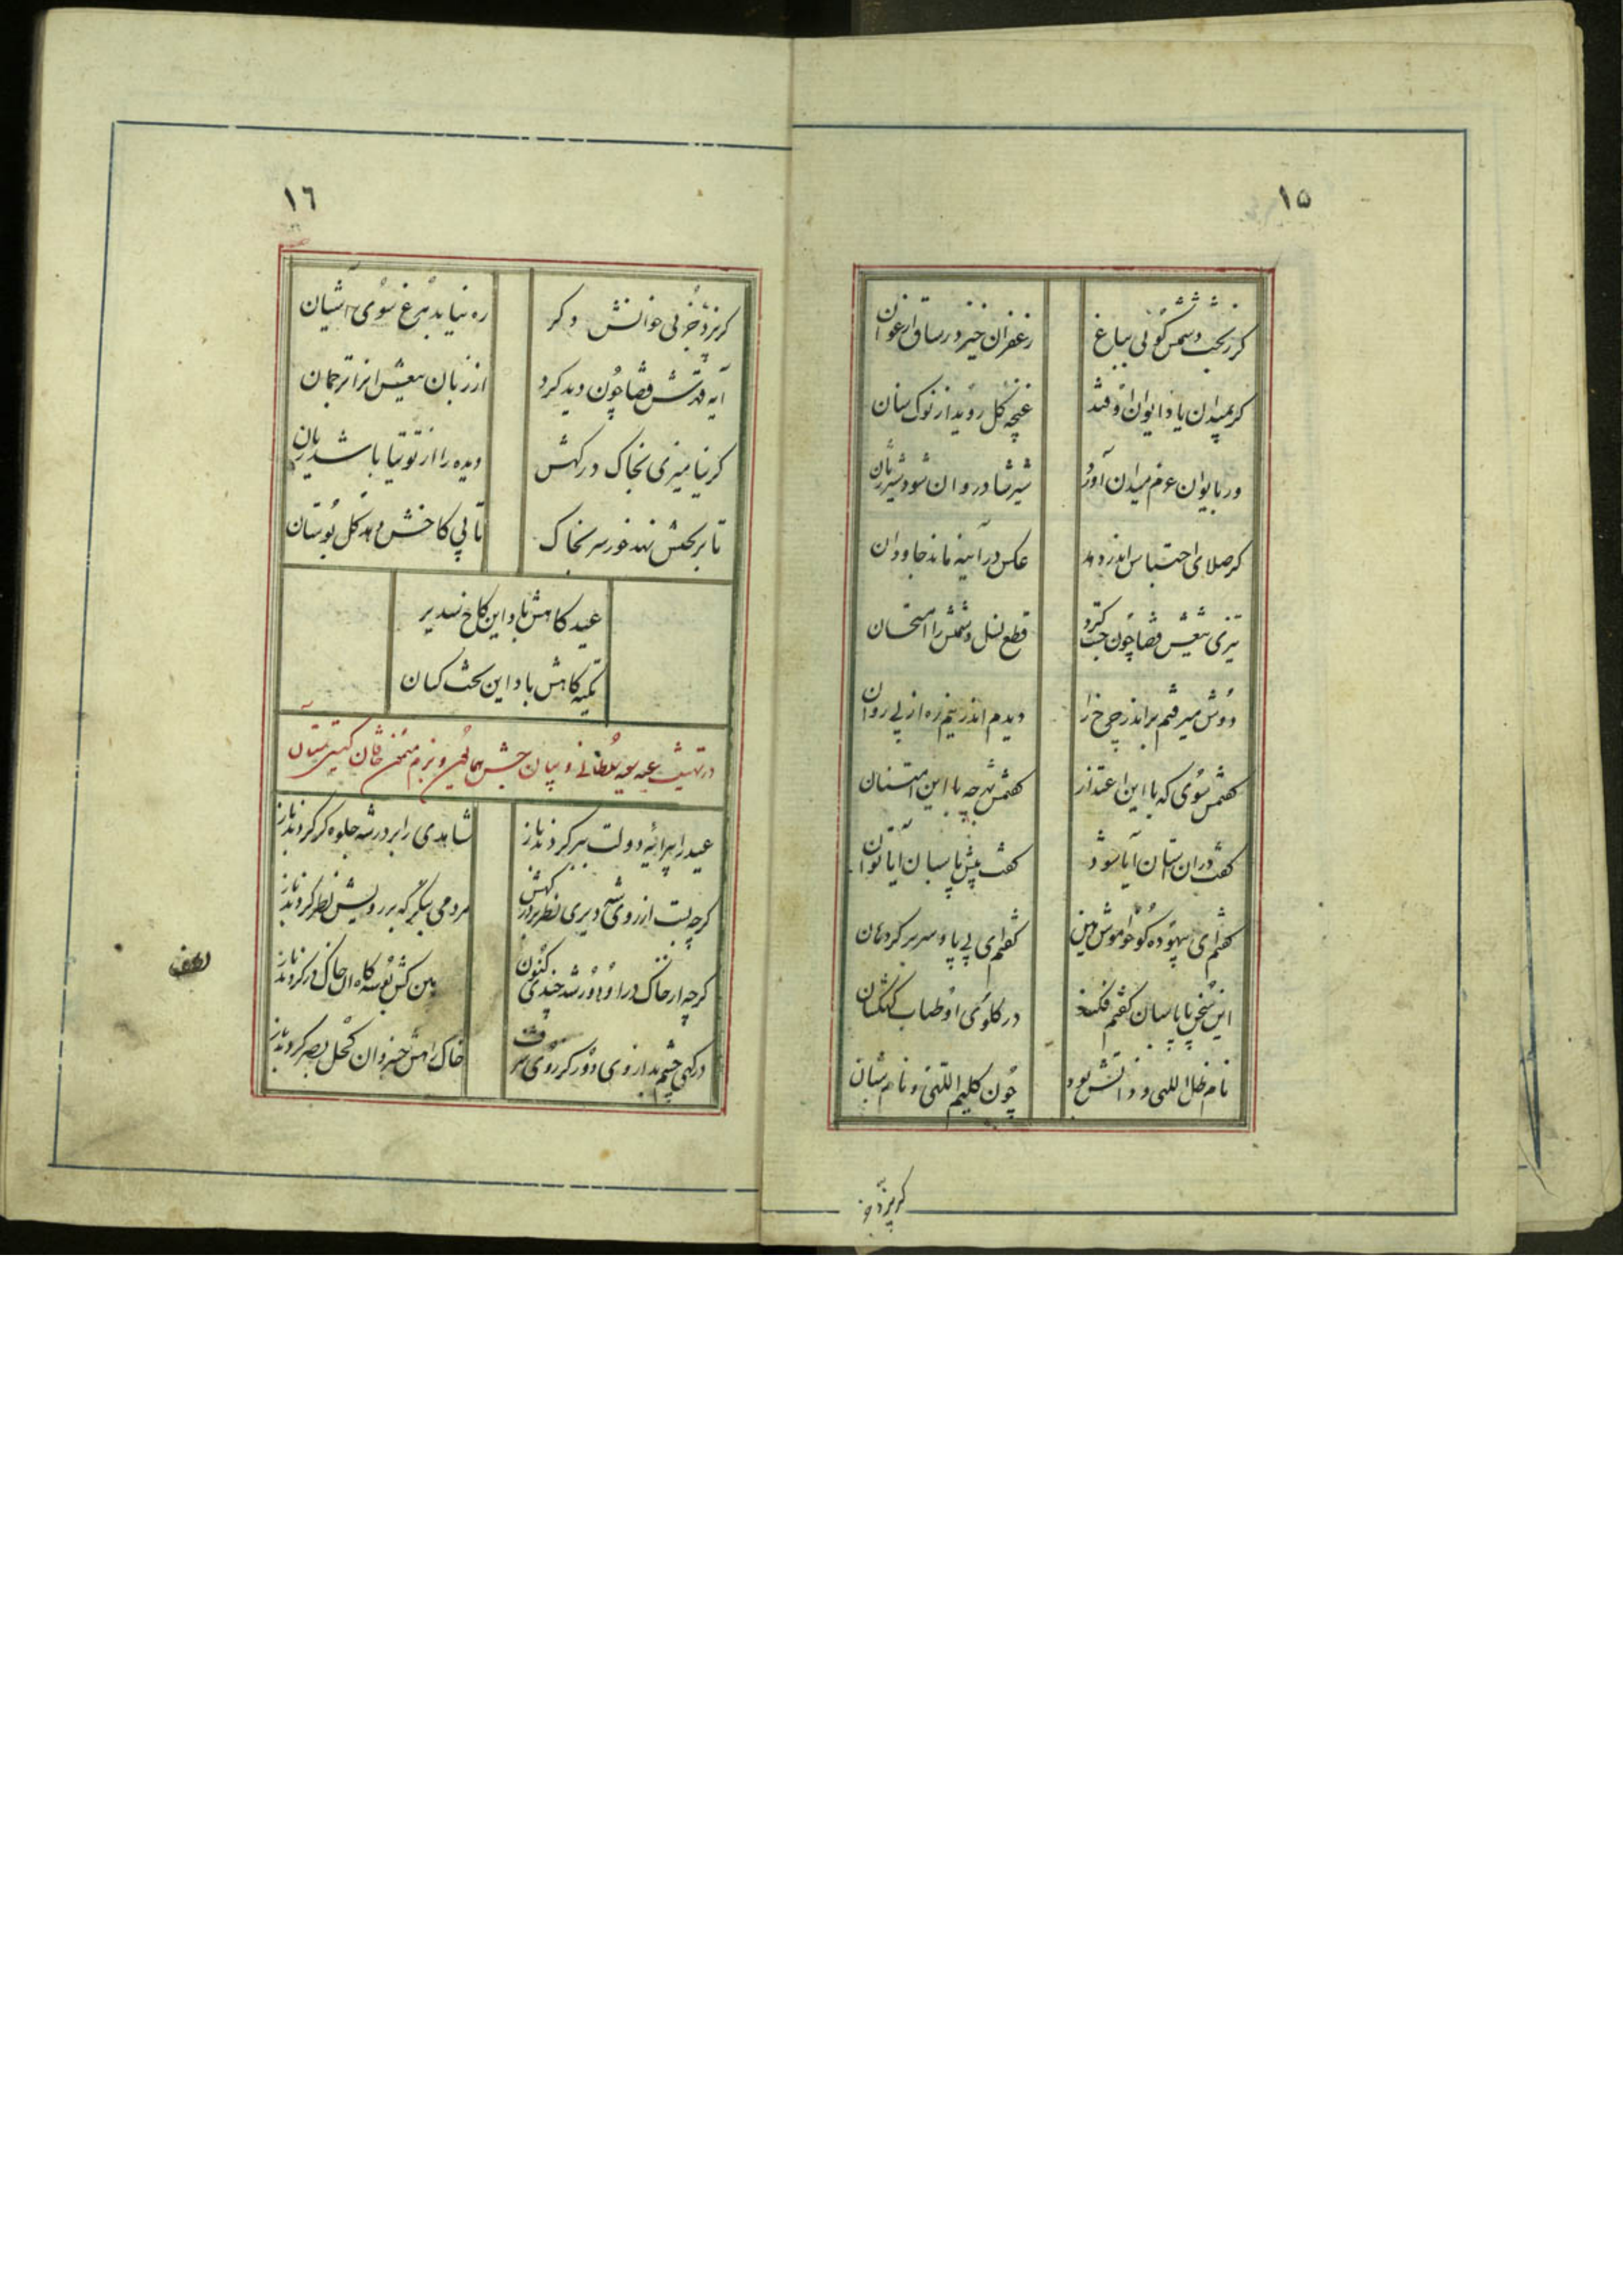 ١٥
گر ز بخت دشمنش گوئی بباغ
زعفران خیزد ز ساق ارغوان
گر بمیدان یاد ایوان اوفتد
غنچه گل روید از نوک سنان
ور بایوان عزم میدان آورد
شیر شادروان شود شیر ژیان
گر صلای احتباس اندر دهد
عکس در آیینه ماند جاودان
تیزی تیغش قضا چون جست کرد
قطع نسل دشمنش را امتحان
دوش میرفتم براندر چرخ را
دیدم اندر نیم ره از پی روان
گفتمش سوی که با این اعتذار
گفتمش بهر چه با این امتنان
گفت در آن آستان آیا شود
گفت پیش پاسبان آیا توان
گفتم ای بیهوده گو خاموش هین
گفتم ای بی پا و سر بر گرد هان
این سخن با پاسبان گفتم فکند
در گلوی او طناب کهکشان
نام ظل اللهی و ذاتش بود
چون کلیم اللهی و نام شبان
گر بزد خو
١٦
گر بزد خوئی خوانش دگر
ره نیابد مرغ سوی آشیان
آیه قدرش قضا چون دید کرد
از زبان تیغش انرا ترجمان
گر نیامیزی بخاک درگهش
دیده را از توتیا باشد زیان
تا بر تختش نهد خور سر بخاک
تا پی کاخش دهد گل بوستان
عید گاهش باد این کاخ سدیر
تکیه گاهش باد این تخت کیان
در تهنیت عید سعید سلطانی و بیان جشن همایون و بزم میمون خاقان گیتی ستان
عید را پیرایه دولت ببر کردند باز
شاهدی را بر در شه جلوه گر کردند باز
گرچه بست از روی شه دیری نظر بر درگهش
مردمی بنگر که بر رویش نظر کردند باز
گرچه از خاک در او دور شد چندی کنون
بین کش بوسه گاه ان خاک در کردند باز
درگهی چشم بد از وی دور کز روی شرف
خاک راهش خسروان کحل بصر کردند باز